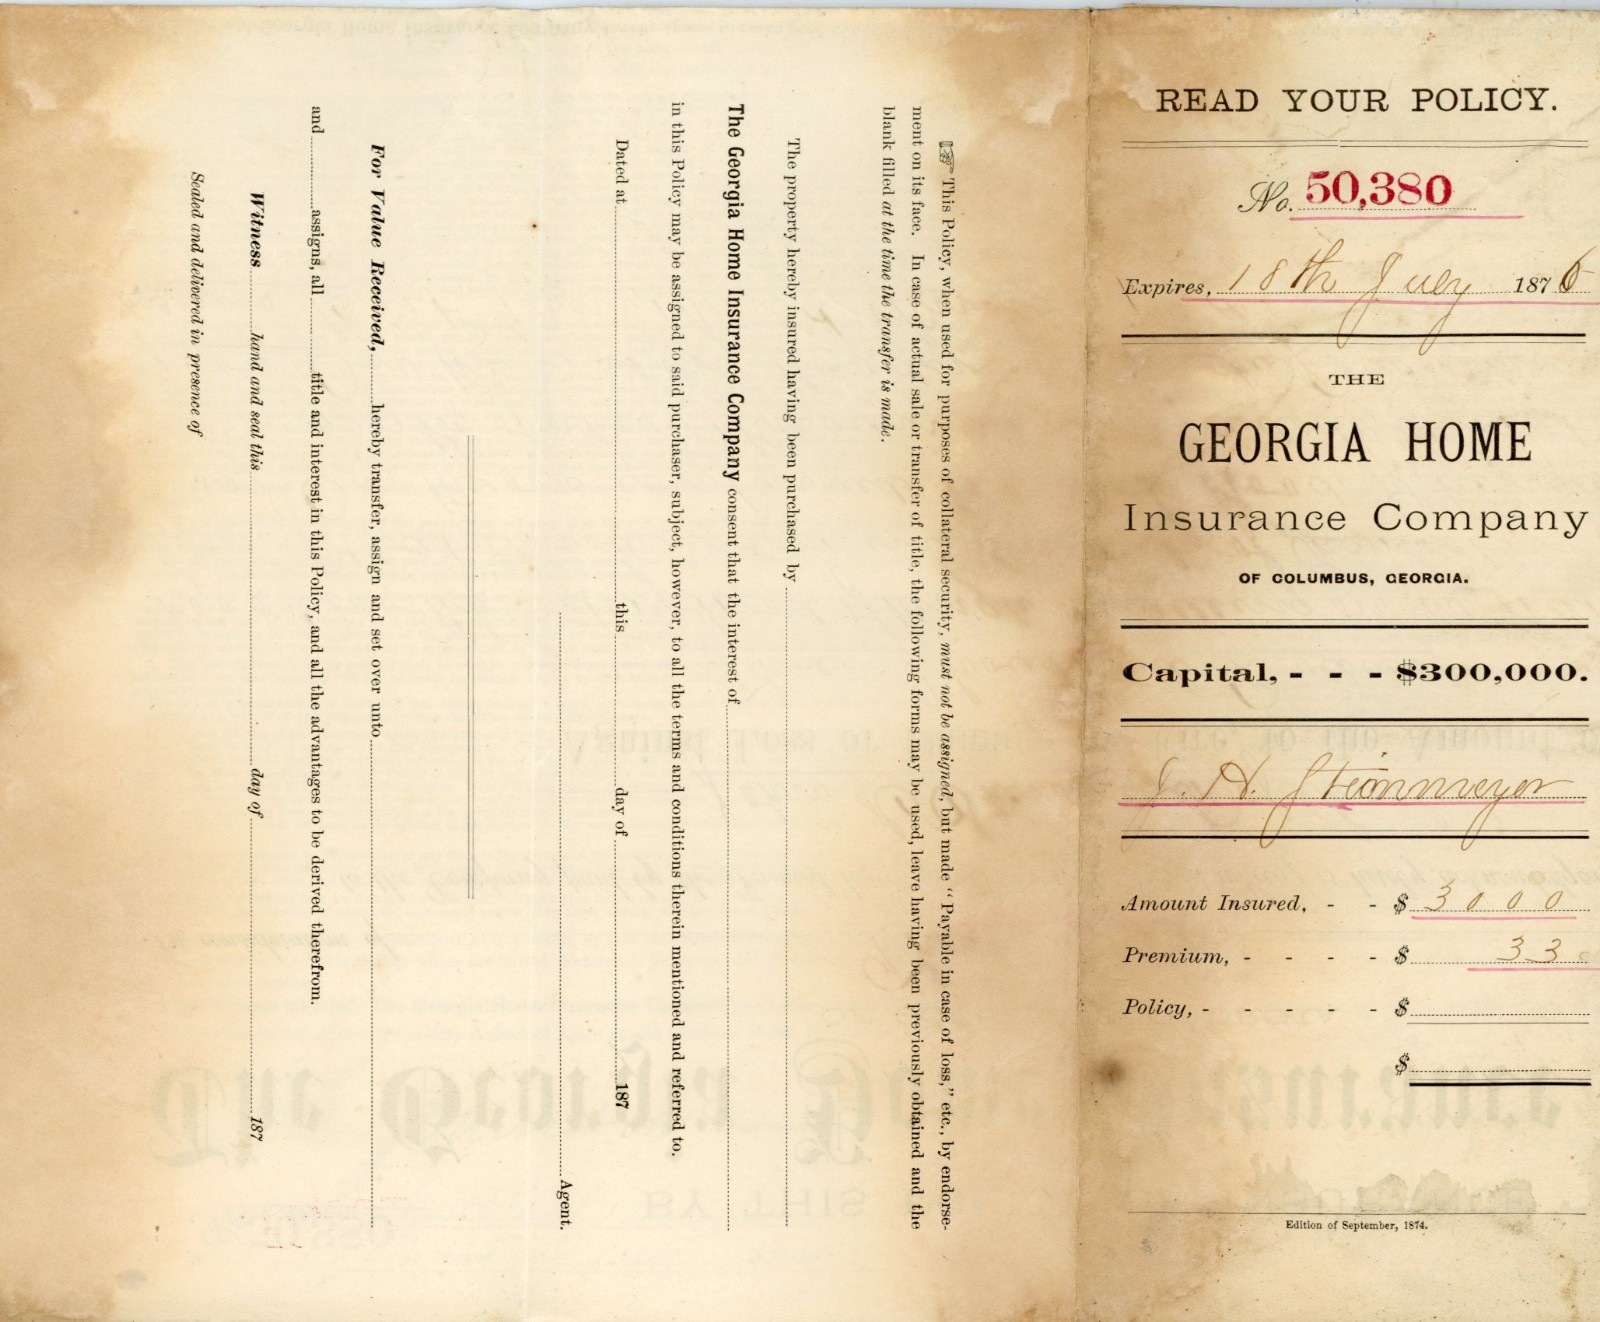 READ YOUR POLICY.
No. 50,380
Expires, 18th July 1876
THE
GEORGIA HOME
Insurance Company
OF COLUMBUS, GEORGIA.
Capital, - - - $300,000.
J. H. Steinmeyer
Amount Insured, - - $ 3000
Premium, - - - - $ 33
Policy, - - - - - $
$
Edition of September, 1874.
☞ This Policy, when used for purposes of collateral security, must not be assigned, but made "Payable in case of loss," etc., by endorse-
ment on its face. In case of actual sale or transfer of title, the following forms may be used, leave having been previously obtained and the
blank filled at the time the transfer is made.
The property hereby insured having been purchased by
The Georgia Home Insurance Company consent that the interest of
in this Policy may be assigned to said purchaser, subject, however, to all the terms and conditions therein mentioned and referred to.
Dated at this day of 187
Agent.
For Value Received, hereby transfer, assign and set over unto
and assigns, all title and interest in this Policy, and all the advantages to be derived therefrom.
Witness hand and seal this day of 187
Sealed and delivered in presence of